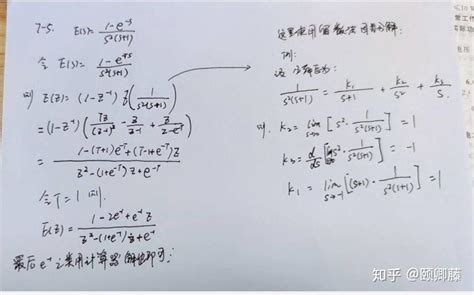 7-5. E(s) = \frac{1-e^{-s}}{s^2(s+1)}
令 E(s) = \frac{1-e^{-Ts}}{s^2(s+1)}
则 E(z) = (1-z^{-1}) Z(\frac{1}{s^2(s+1)})
= (1-z^{-1}) (\frac{Tz}{(z-1)^2} - \frac{z}{z-1} + \frac{z}{z-e^{-T}})
= \frac{1-(T+1)e^{-T}+(T-1+e^{-T})z}{z^2-(1+e^{-T})z+e^{-T}}
令T=1 则
E(z) = \frac{1-2e^{-1}+e^{-1}z}{z^2-(1+e^{-1})z+e^{-1}}
最后 e^{-1} 用计算器 即可
这里使用留数法 因式分解:
例:
\frac{1}{s^2(s+1)} = \frac{k_1}{s+1} + \frac{k_2}{s^2} + \frac{k_3}{s}
则. k_2 = \lim_{s→0} [s^2 · \frac{1}{s^2(s+1)}] = 1
k_3 = \frac{d}{ds} [s^2 · \frac{1}{s^2(s+1)}] = -1
k_1 = \lim_{s→-1} [(s+1) · \frac{1}{s^2(s+1)}] = 1
知乎 @颐卿藤